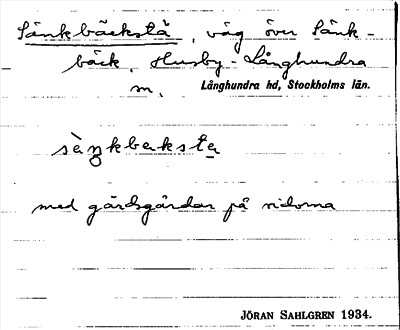 Sänkbäckstä, väg över Sänk-
bäck, Husby-Långhundra
sn, Långhundra hd, Stockholms län.
sèŋkbɛksta
med gärdsgårdar på sidorna
JÖRAN SAHLGREN 1934.